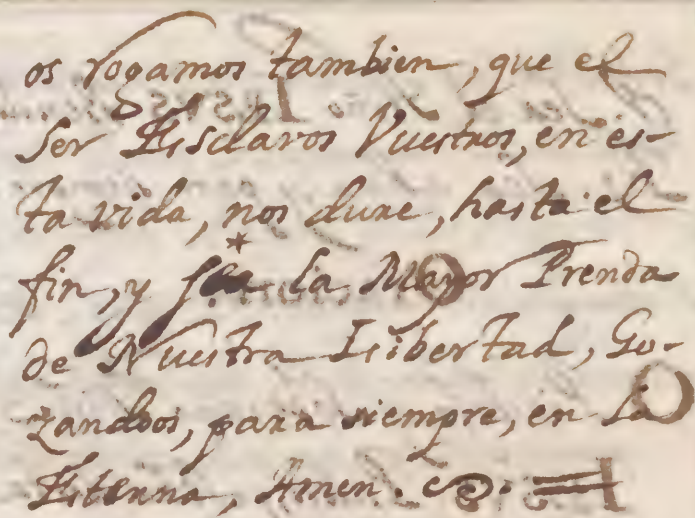 os rogamos tambien, que el
ser Esclavos Vuestros, en es-
ta vida, nos dure, hasta el
fin, y sea la Mayor Prenda
de Nuestra Libertad, Go-
zandoos, para siempre, en La
Eterna, Amen.